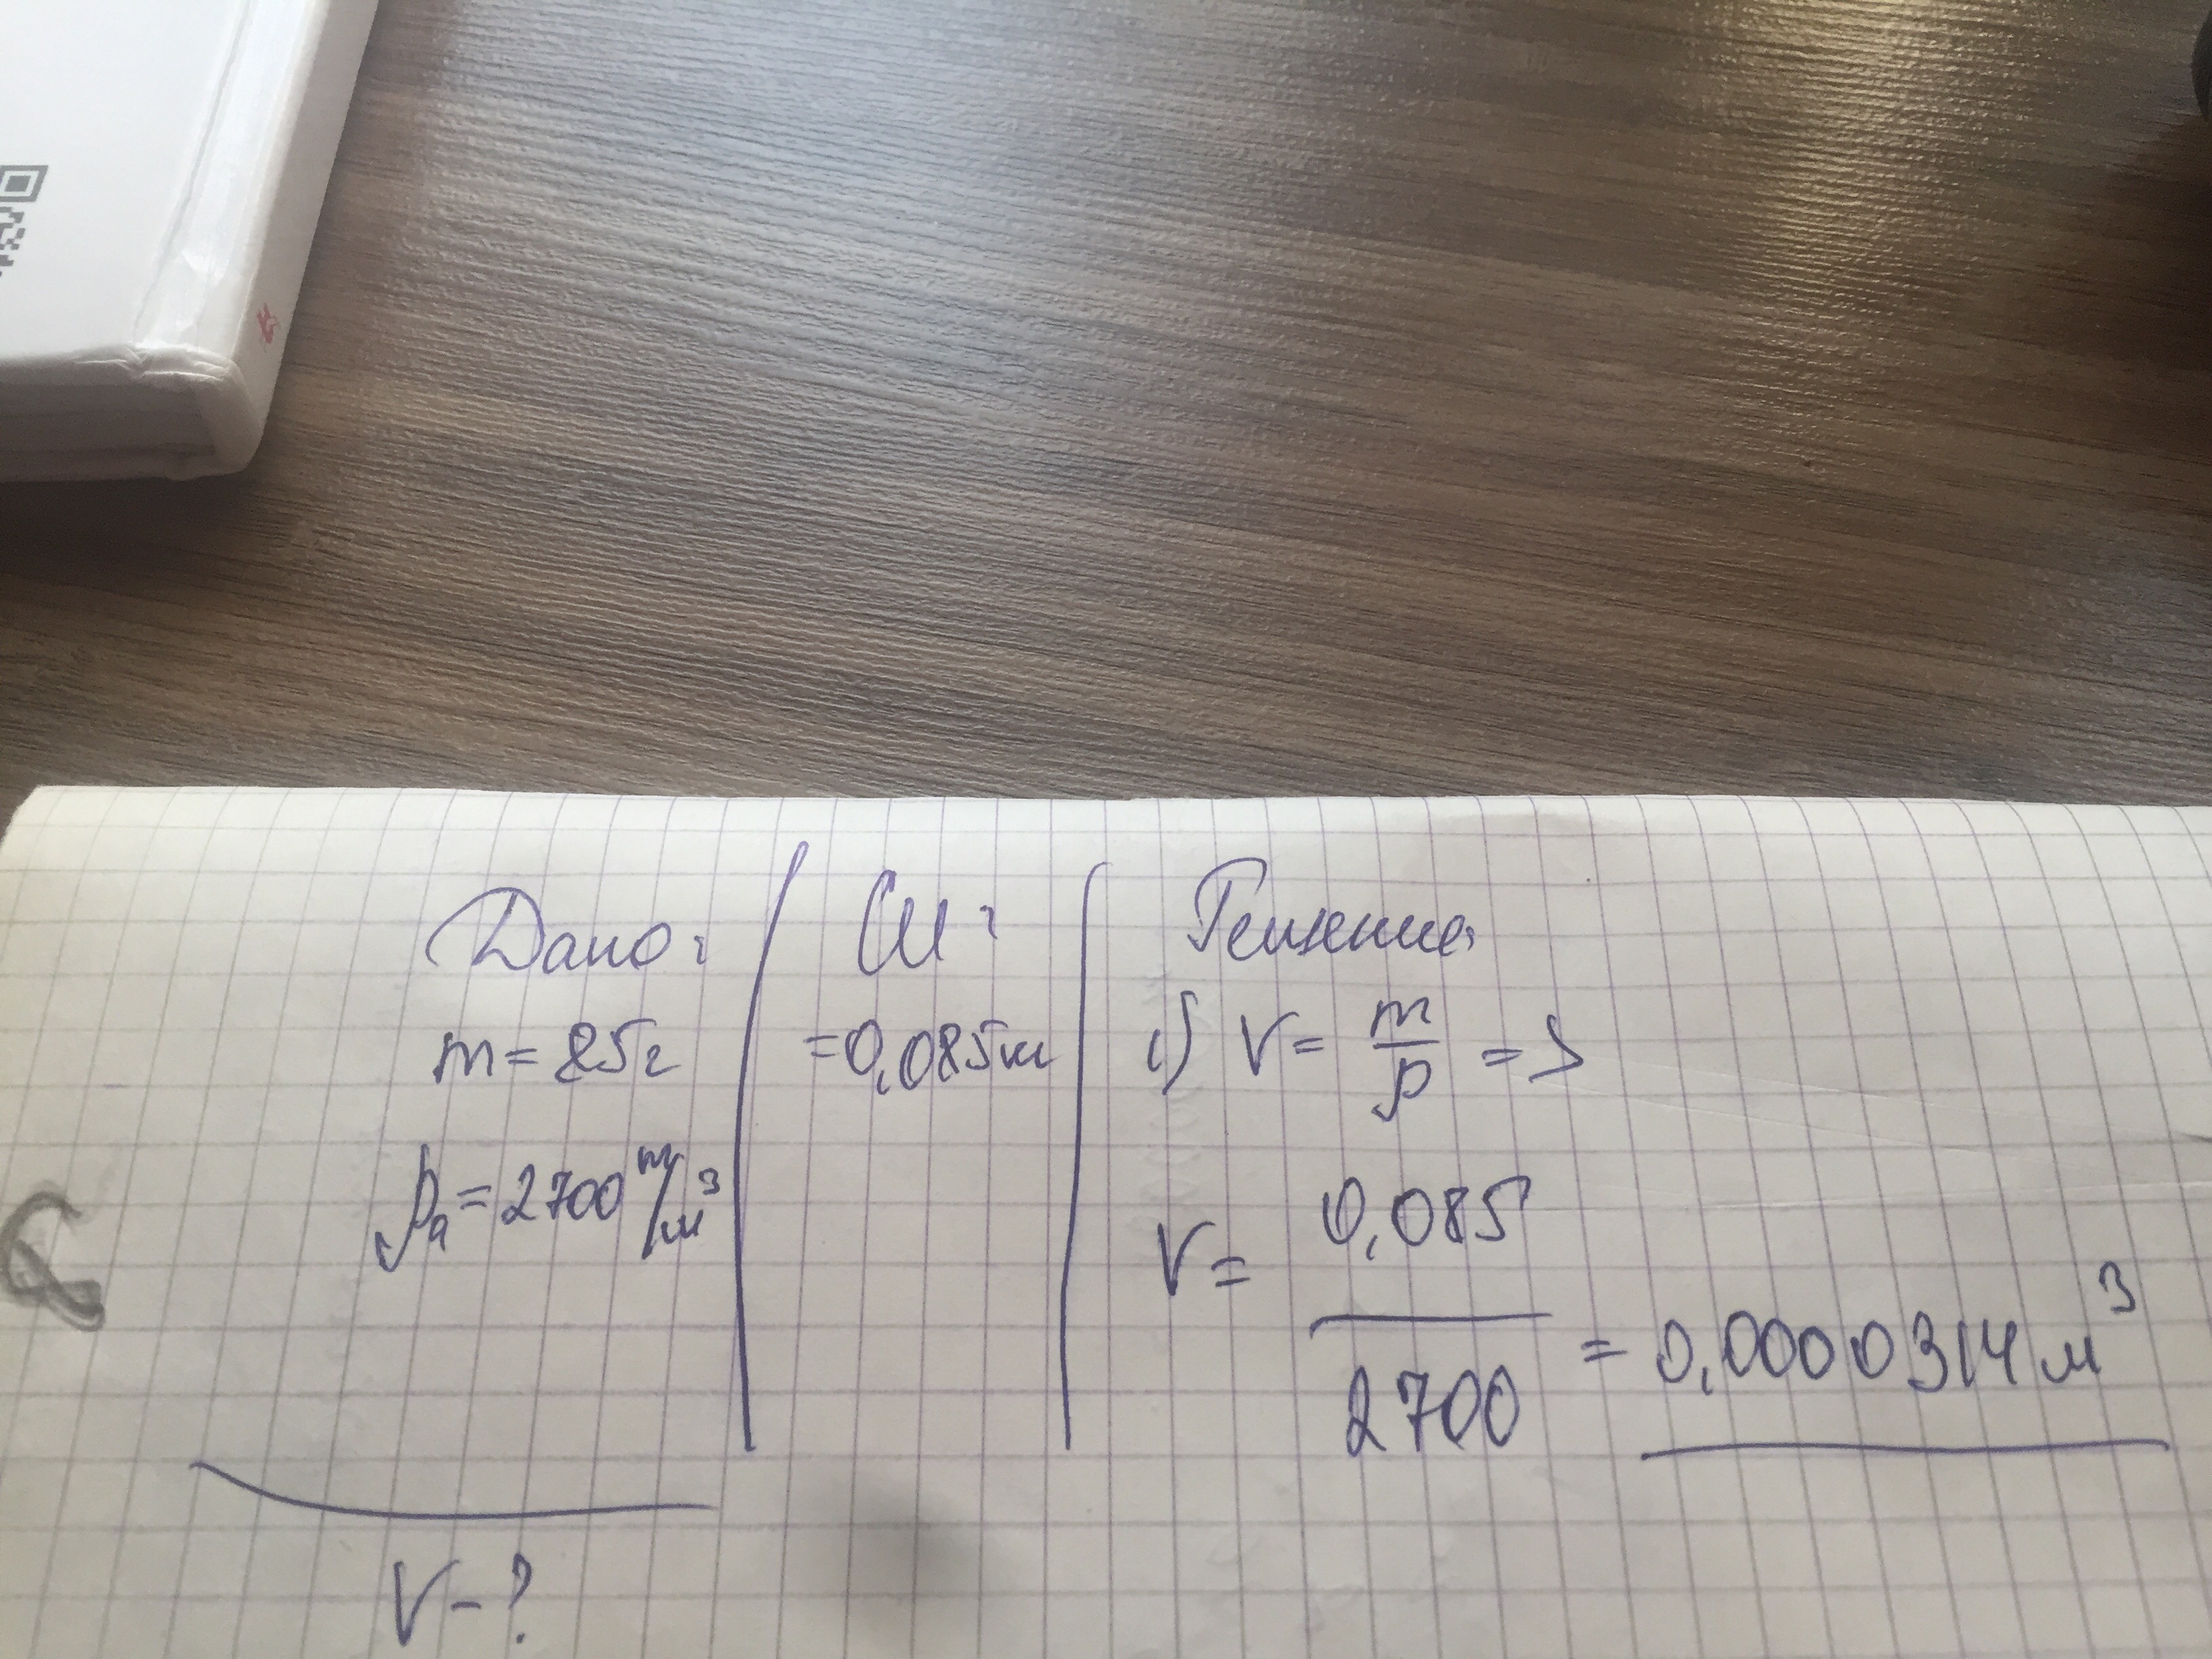 Дано:
m = 85г
ρа = 2700 m/м³
V - ?
СИ:
= 0,085кг
Решение:
1) V = m/ρ =>
V = 0,085/2700 = 0,0000314 м³